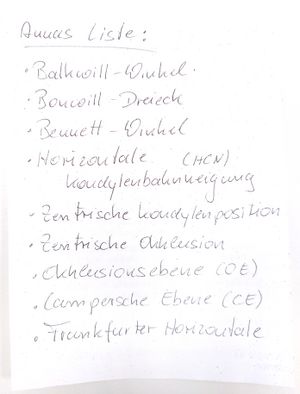 Annas Liste:
· Balkwill-Winkel
· Bonwill-Dreieck
· Bennett-Winkel
· Horizontale (HCN)
Kondylenbahnneigung
· Zentrische Kondylenposition
· Zentrische Okklusion
· Okklusionsebene (OE)
· Campersche Ebene (CE)
· Frankfurter Horizontale